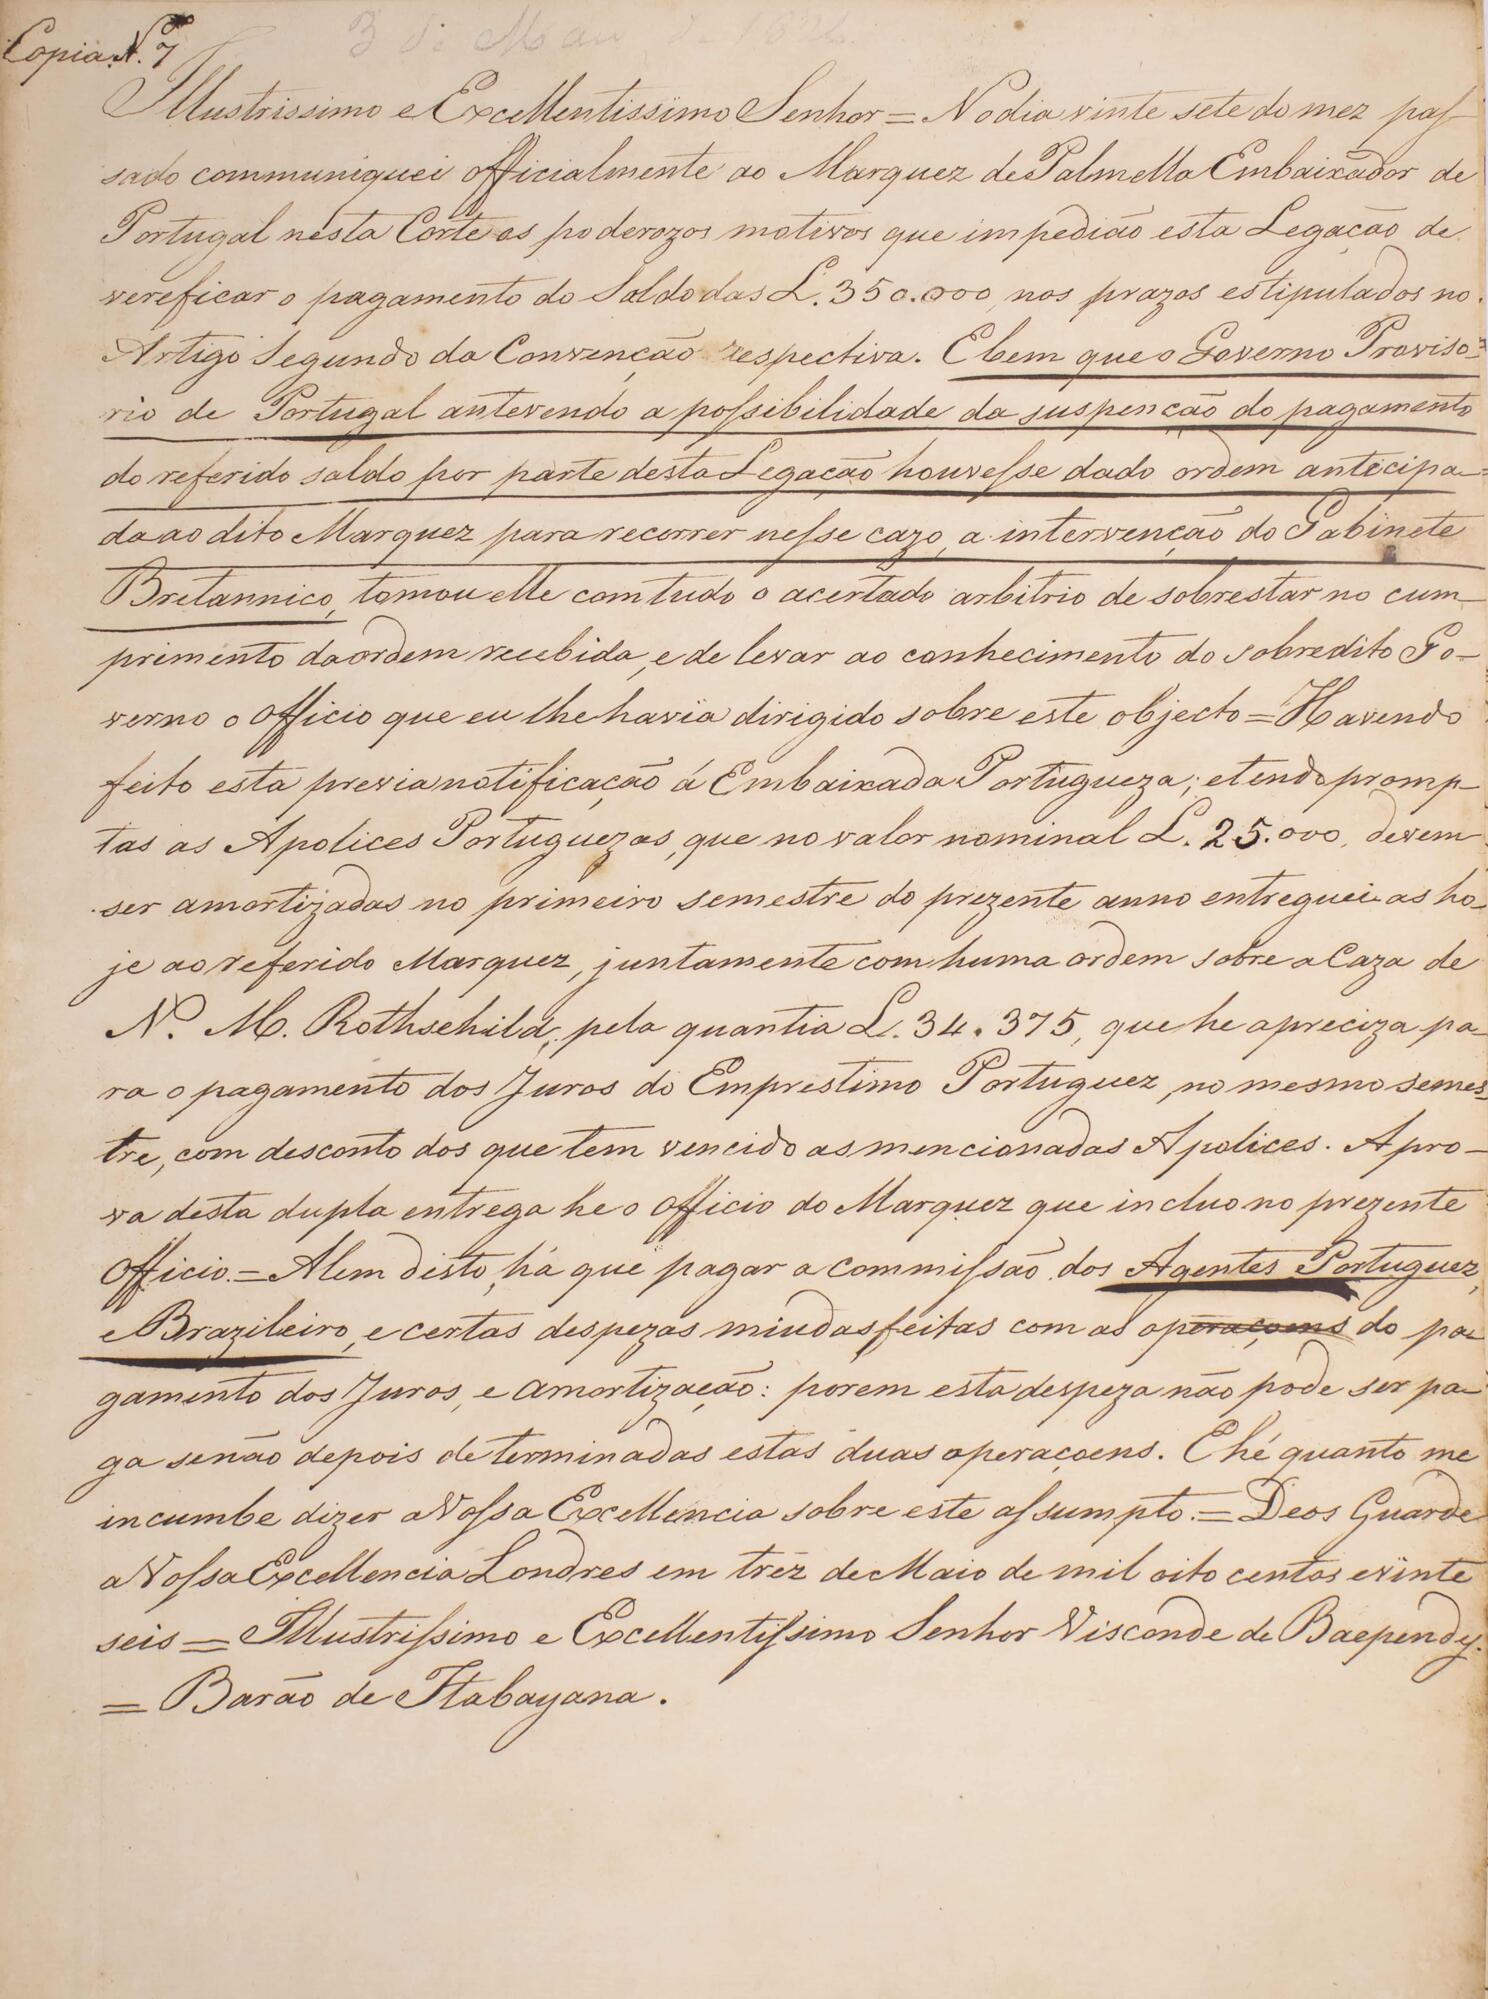 Copia N.º 7
3 de Maio de 1826
Illustrissimo e Excellentissimo Senhor = No dia vinte sete do mez pas-
sado communiquei officialmente ao Marquez de Palmella Embaixador de
Portugal nesta Corte os poderozos motivos que impedião esta Legação de
vereficar o pagamento do Saldo das L. 350.000, nos prazos estipulados no
Artigo Segundo da Convenção respectiva. E bem que o Governo Proviso-
rio de Portugal antevendo a possibilidade da suspenção do pagamento
do referido saldo por parte desta Legação houvesse dado ordem anticipa-
da ao dito Marquez para recorrer nesse cazo, a intervenção do Gabinete
Bretannico, tomou elle comtudo o acertado arbitrio de sobrestar no cum-
primento da ordem recebida, e de levar ao conhecimento do sobredito Go-
verno o officio que eu lhe havia dirigido sobre este objecto = Havendo
feito esta previa notificação á Embaixada Portugueza; e tendo promp-
tas as Apolices Portuguezas, que no valor nominal L. 25.000, devem
ser amortizadas no primeiro semestre do prezente anno entreguei as ho-
je ao referido Marquez, juntamente com huma ordem sobre a Caza de
N. M. Rothschild, pela quantia L. 34.375, que he apreciza pa-
ra o pagamento dos Juros do Emprestimo Portuguez, no mesmo semes-
tre, com desconto dos que tem vencido as mencionadas Apolices. A pro-
va desta dupla entrega he o officio do Marquez que incluo no prezente
Officio. = Alem disto, há que pagar a commissão dos Agentes Portuguez,
e Brazileiro, e certas despezas miudas feitas com as operaçoens do pa-
gamento dos Juros, e amortização: porem esta despeza não pode ser pa-
ga senão depois de terminadas estas duas operaçoens. E hé quanto me
incumbe dizer a Vossa Excellencia sobre este assumpto. = Deos Guarde
a Vossa Excellencia Londres em tréz de Maio de mil oito centos e vinte
seis = Illustrissimo e Excellentissimo Senhor Visconde de Baependy.
= Barão de Itabayana.